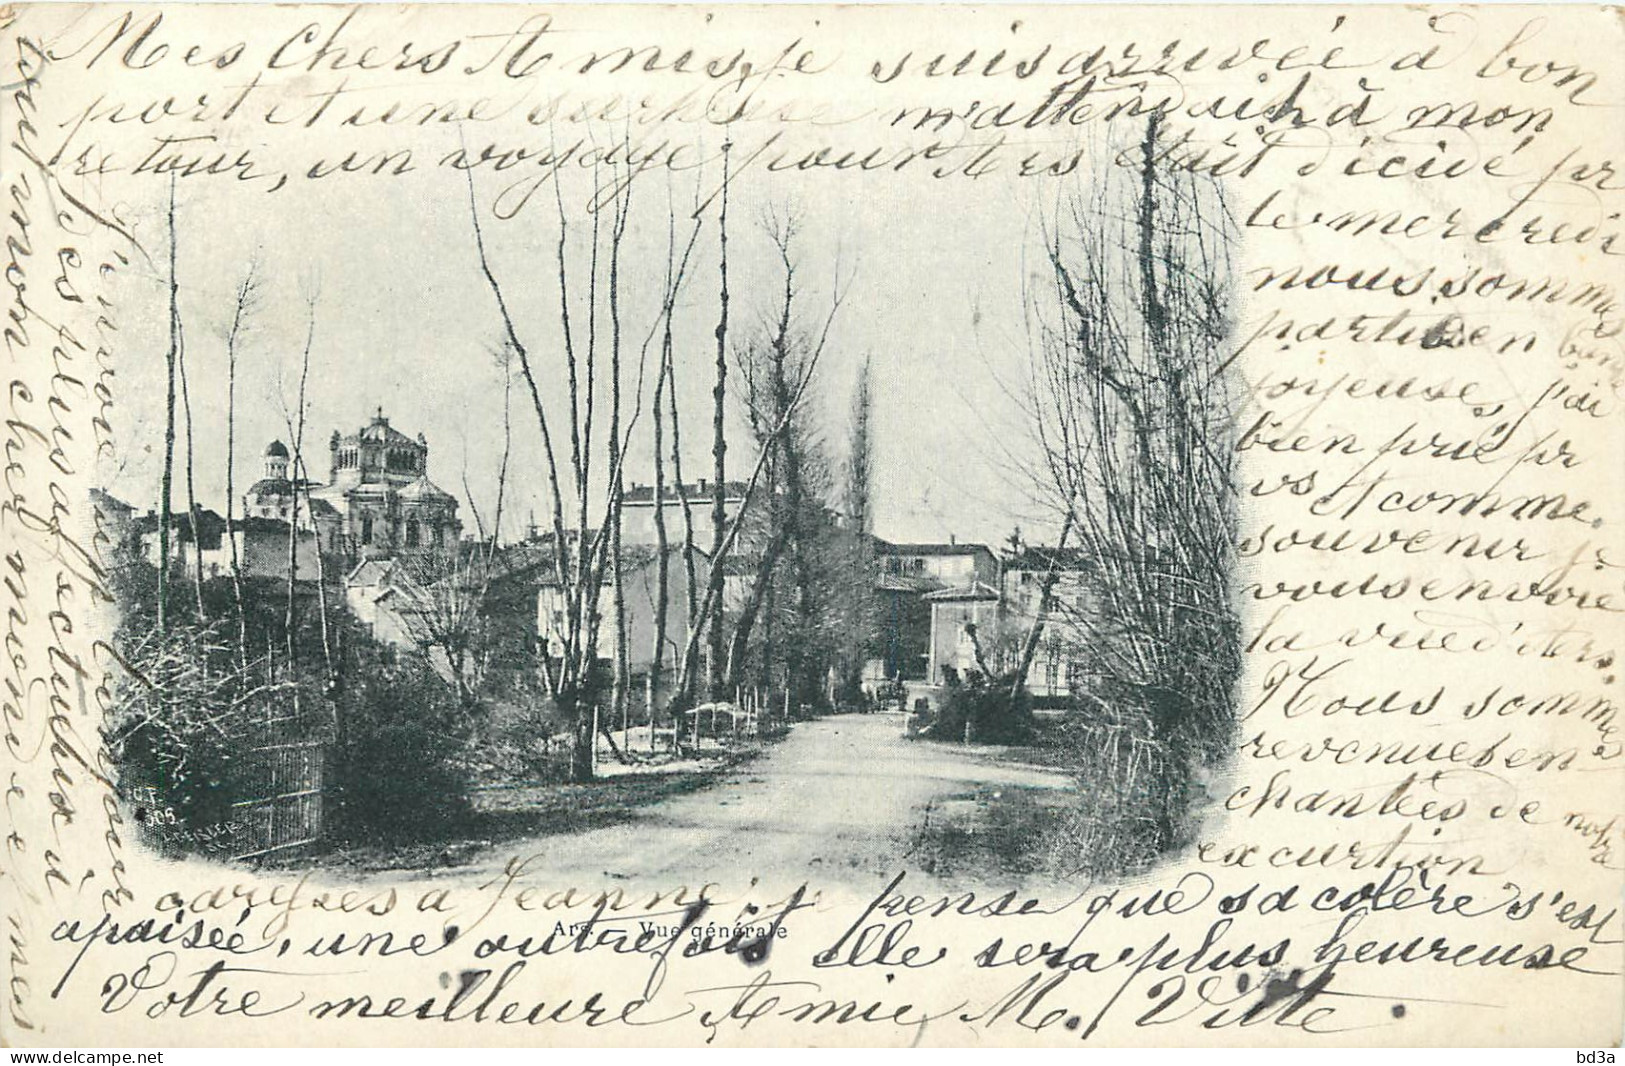 Mes Chers Amis, je suis arrivée à bon
port et une surprise m'attendait à mon
retour, un voyage pour Ars était décidé pr
le mercredi
nous sommes
parties en bande
joyeuse, j'ai
bien prié pr
vs et comme
souvenir je
vous envoie
la vue d'Ars.
Nous sommes
revenues en-
chantées de notre
excurtion
J'envoie un bonjour
des plus affectueux à
tout mon cher monde mes
caresses a Jeanne; je pense que sa colère s'est
apaisée, une autrefois elle sera plus heureuse
Votre meilleure Amie M. Vitte.
Ars. — Vue générale
C.F.
506.
bd3a